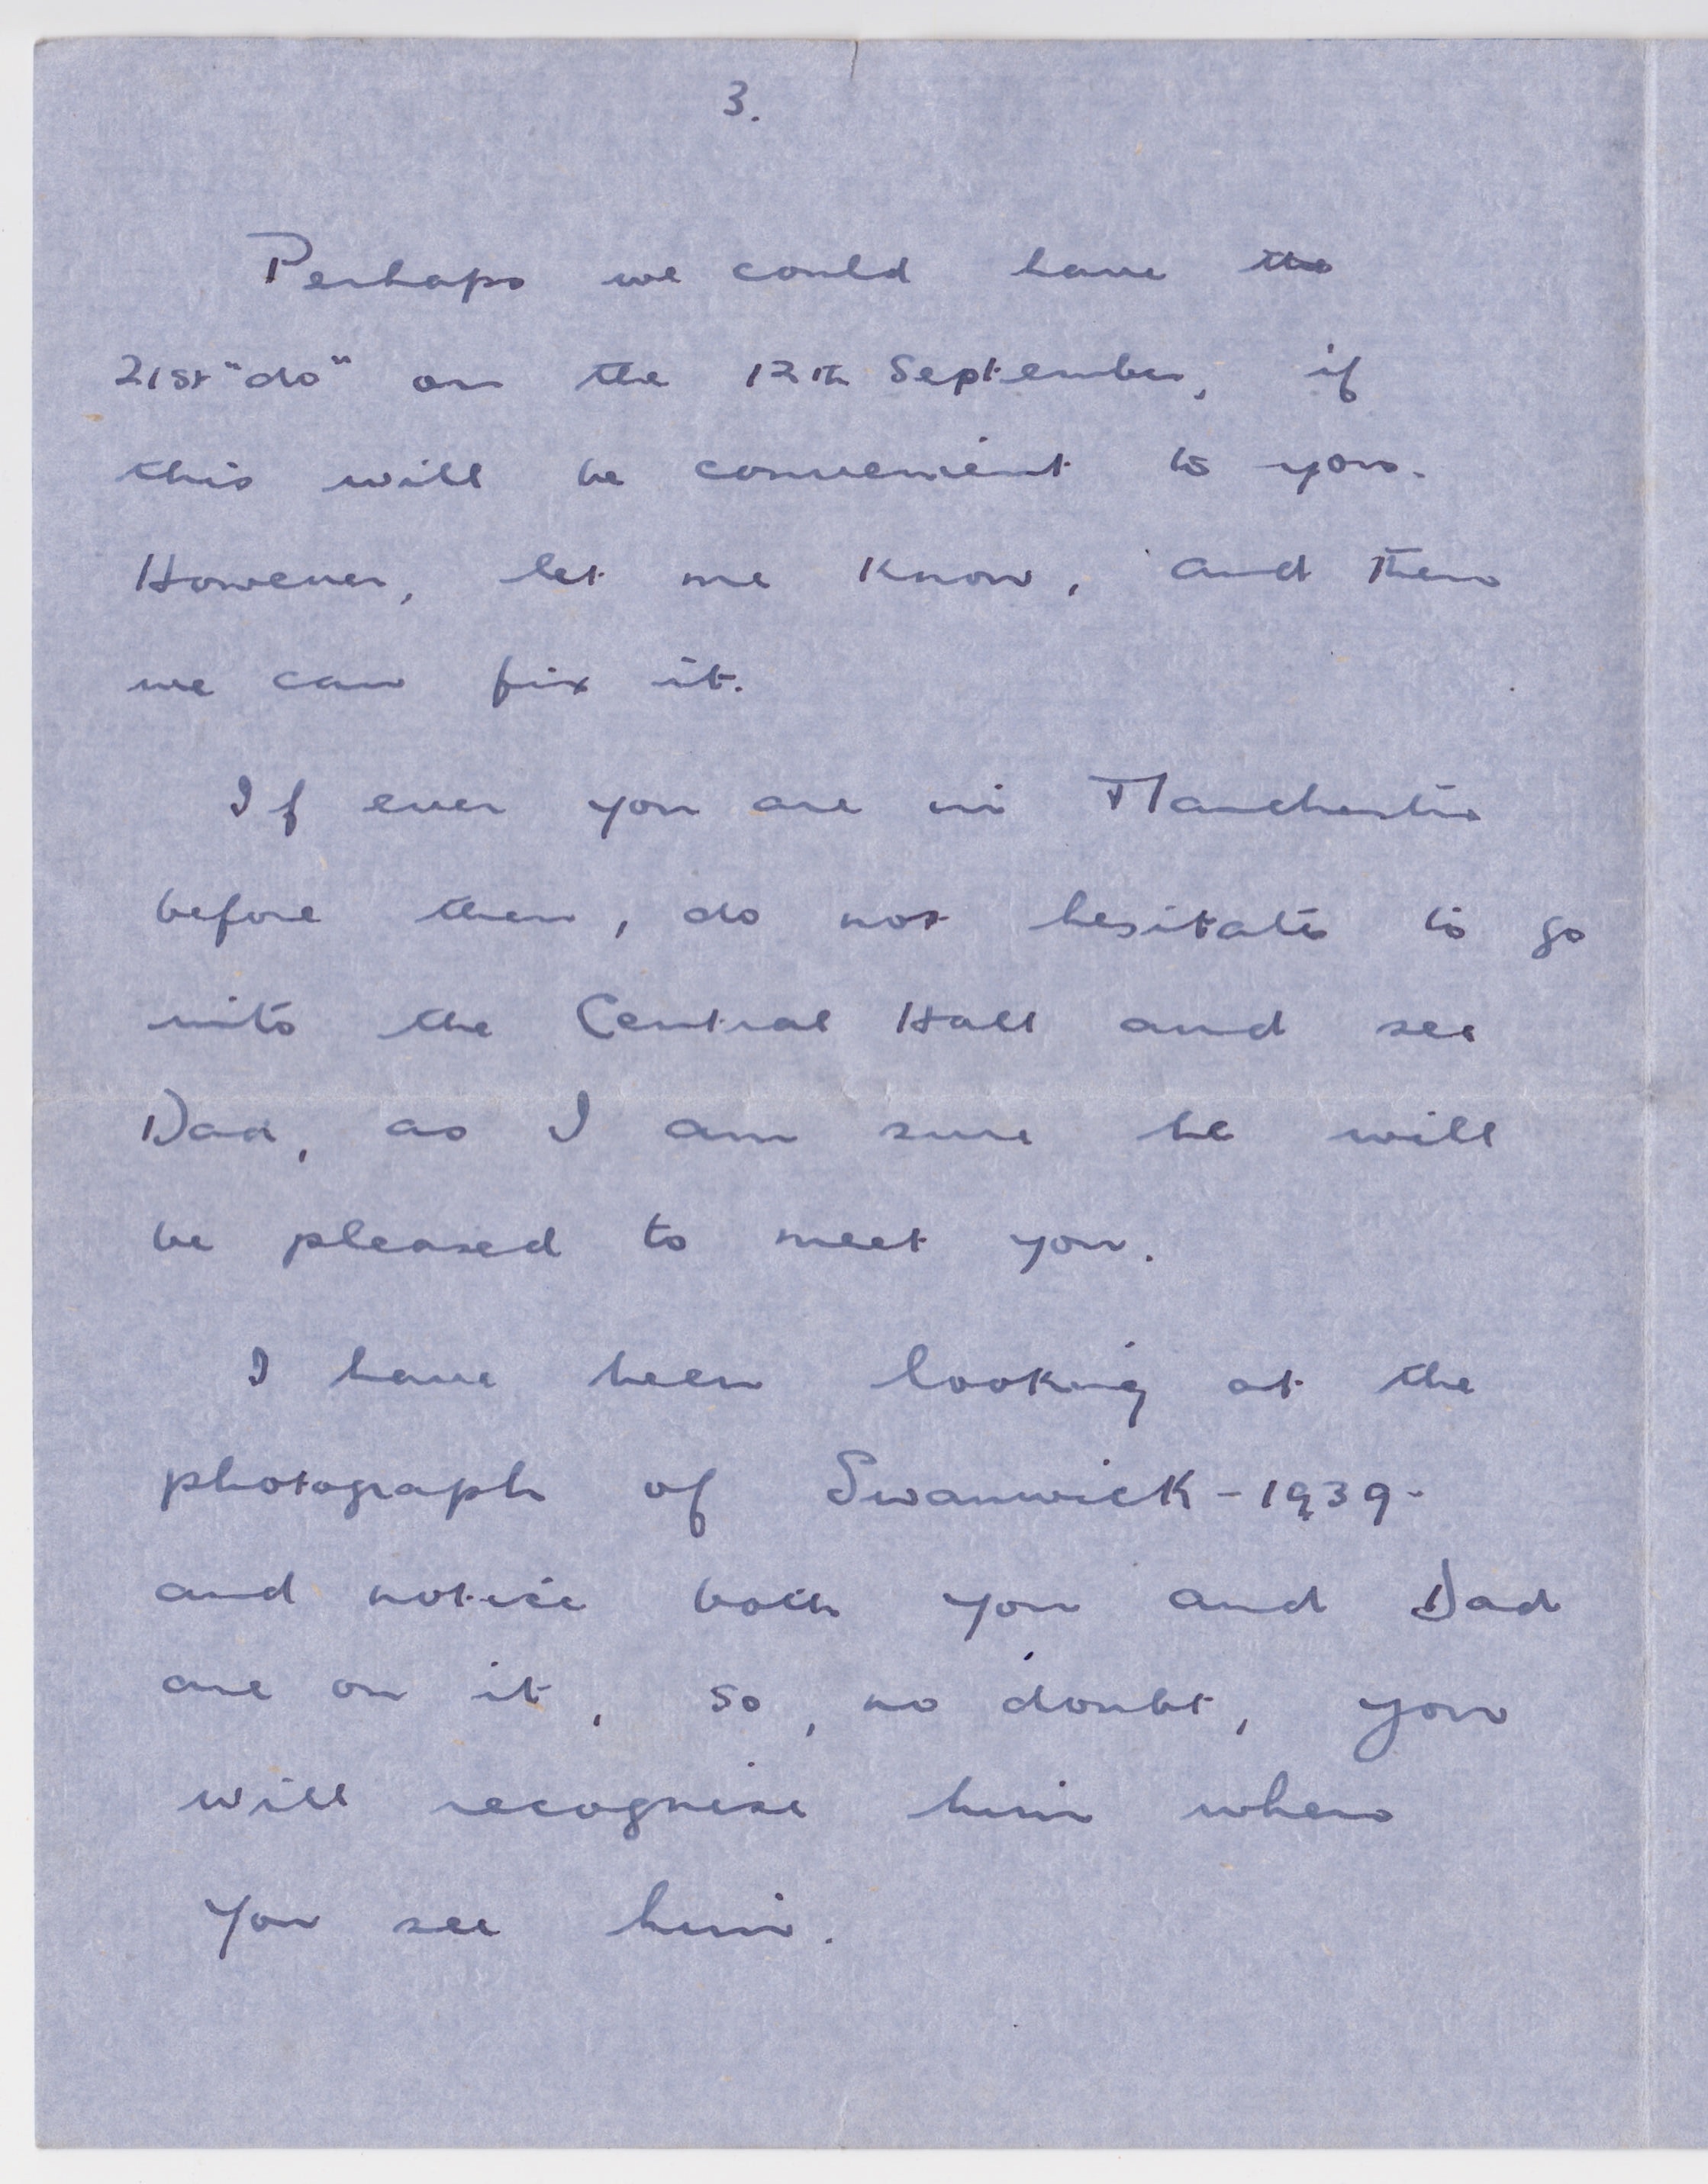 3.
Perhaps we could have the
21st "do" on the 12th September, if
this will be convenient to you.
However, let me know, and then
we can fix it.
If ever you are in Manchester
before then, do not hesitate to go
into the Central Hall and see
Dad, as I am sure he will
be pleased to meet you.
I have been looking at the
photograph of Swanwick - 1939 -
and notice both you and Dad
are on it, so, no doubt, you
will recognise him when
you see him.